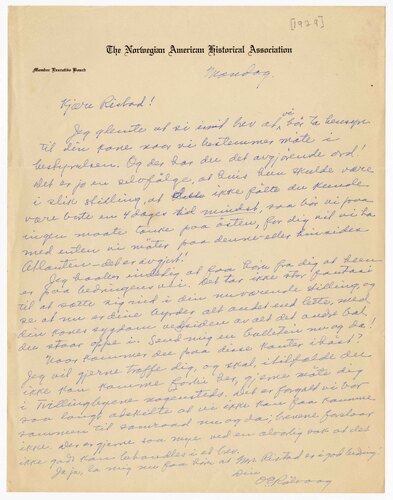 [1929]
The Norwegian American Historical Association
Member Executive Board
Mandag.
Kjære Ristad!
Jeg glemte at si imit brev at vi bör ta hensyn
til din kone naar vi bestemmer möte i
bestyrelsen. Og der har du det avgjörende ord!
Det er jo en selvfölge, at hvis hun skulde være
i slik stilling, at ikke fölte du kunde
være borte en 4 dages tid mindst, saa bör vi paa
ingen maate tænke paa östen, for dig vil vi ha
med enten vi möter paa denne eller hinsiden
Atlanten - det er avgjort!
Jeg haaber inderlig at faa höre fra dig at hun
er paa bedringens vei. Det tar ikke stor fantasi
til at sætte sig ind i din nuværende stilling, og
se at nu er dine byrder alt andet end lette, med
din kones sygdom ved siden av det det andre
du staar oppe i. Send mig en bulletin nu og da!
Naar kommer du paa disse kanter ihöst?
Jeg vil gjerne træffe dig, og skal, i tilfælde du
ikke kan komme forbi her, gjerne möte dig
i Tvillingbyene nogensteds. Det er forgalt vi bor
saa langt adskilte at vi ikke kan faa komme
sammen til samraad nu og da; brevene forslaar
ikke. Der er gjerne saa mye ved en alvorlig sak at det
ikke godt kan behandles i et brev.
Ja ja, la mig nu faa höre at Mrs. Ristad er i god bedring!
Din
O E Rölvaag